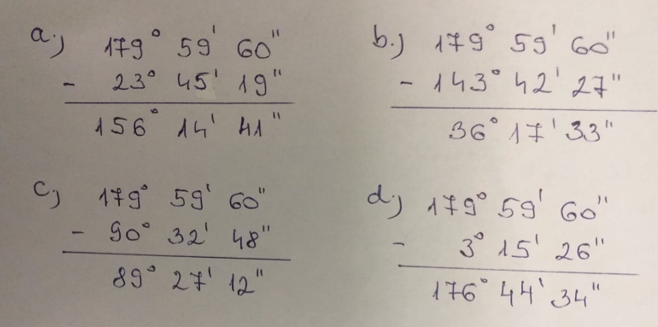 a.) 179° 59' 60"
- 23° 45' 19"
156° 14' 41"
b.) 179° 59' 60"
- 143° 42' 27"
36° 17' 33"
c.) 179° 59' 60"
- 90° 32' 48"
89° 27' 12"
d.) 179° 59' 60"
- 3° 15' 26"
176° 44' 34"